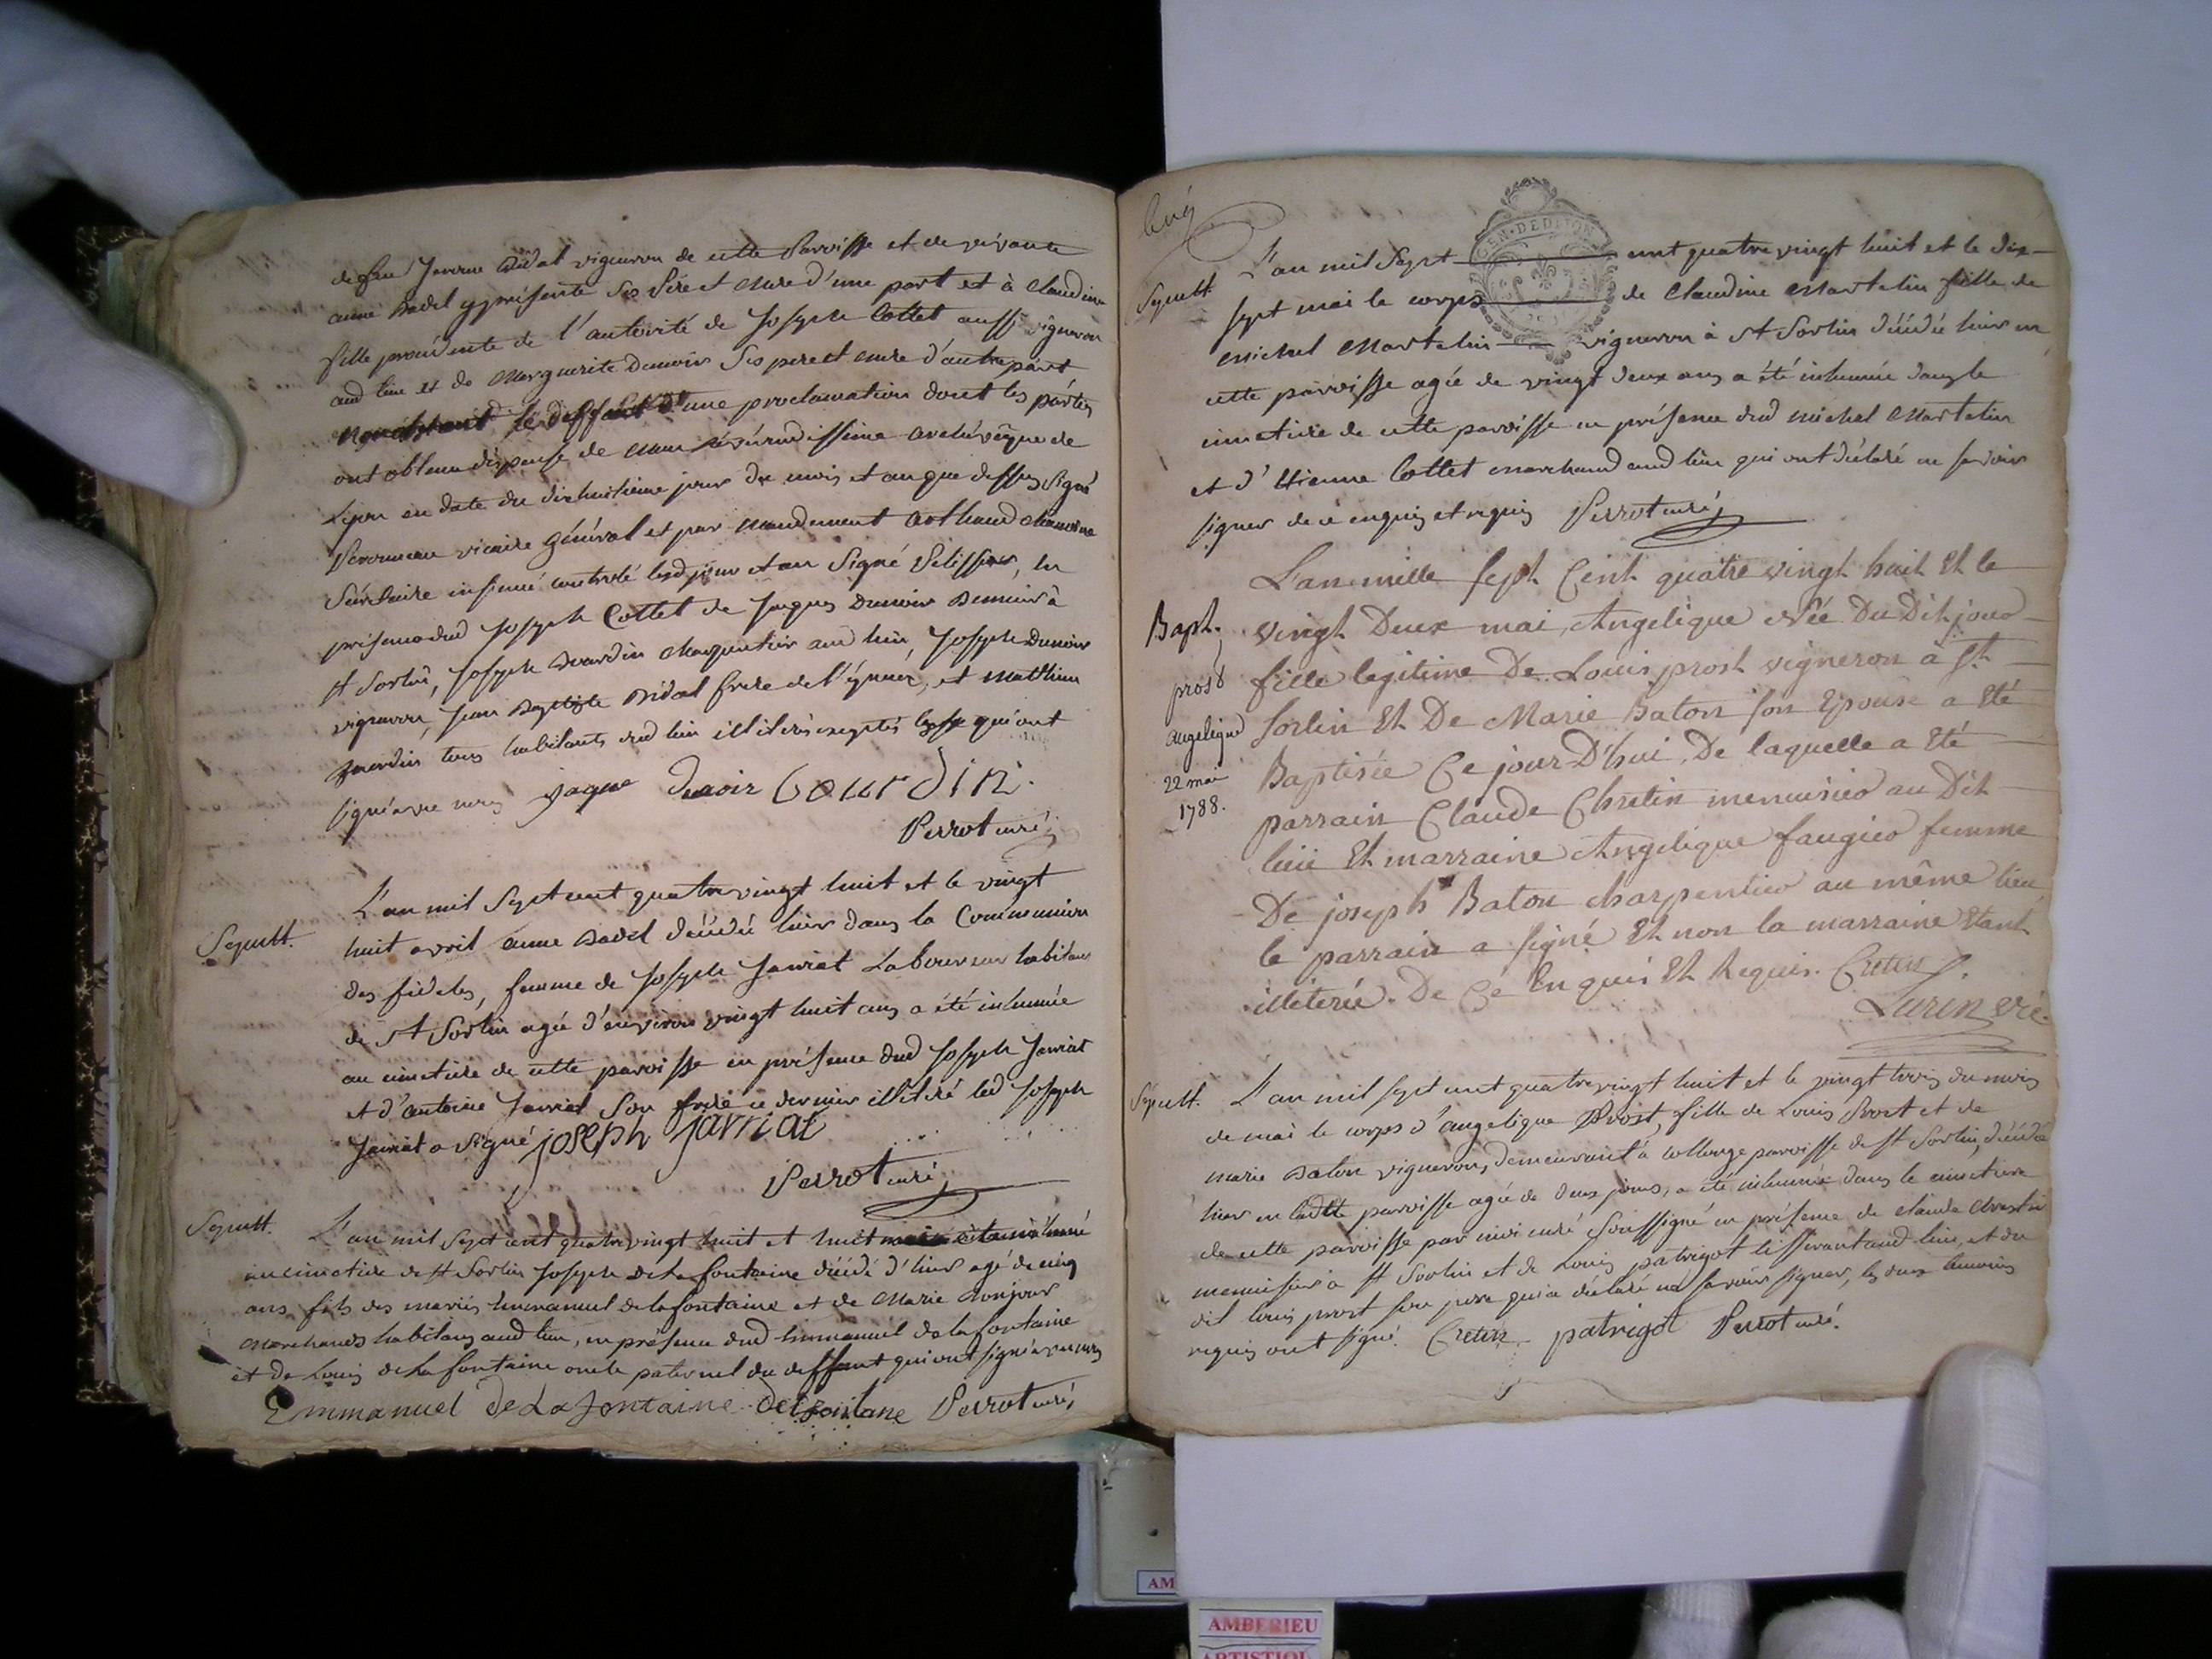 de feu Jerome Bidal vigneron de cette Parroisse et de vivante
anne Badel y présente Ses Père et Mere d'une part et à Claudine
fille procédente de l'autorité de Joseph Cottet aussi vigneron
aud lieu et de Marguerite Dunoir Ses pere et mere d'autre part
Nonobstant le deffaut d'une proclamation dont les parties
ont obtenu dispense de révérendissime archévêque de
Lyon en date du dixhuitième jour du mois et an que dessus Signé
vicaire général et par Mandement
Sécrétaire insinué controlé lesd jour et an Signé Pelissier, en
présence dud Joseph Cottet de Jaques Dunoir Demeur à
St Sorlin, Joseph Charpentier aud lieu, Joseph Dunoir
vigneron, Jean Baptiste Bidal frere de l'époux, et Matthieu
tous habitants dud lieu illiterés exceptés qui ont
signé avec nous jaque dunoir Gourdin.
Perrot curé
Sepult.
L'an mil Sept cent quatre vingt huit et le vingt
huit avril anne Badel décédée hier dans la Communion
des fidèles, femme de Joseph Janriat Laboureur habitant
de St Sorlin agée d'environ vingt huit ans a été inhumée
au cimetière de cette paroisse en présence dud Joseph Janriat
et d'antoine Janriat Son frere ce dernier illitéré led Joseph
Janriat a Signé joseph janriat
Perrot curé
Sepult.
L'an mil Sept cent quatre vingt huit et huit mai a été inhumé
au cimetière de St Sorlin Joseph De la fontaine décédé d'hier agé de cinq
ans fils des mariés Emmanuel de la fontaine et de Marie Monjour
Marchands habitans aud lieu, en présence dud Emmanuel de la fontaine
et de Louis de la fontaine oncle paternel du deffunt qui ont signé avec nous
Emmanuel De La fontaine delafontane Perrot curé
Sepult.
L'an mil Sept cent quatre vingt huit et le dix-
GEN. DE DIJON
sept mai le corps de Claudine Martelin fille de
Michel Martelin vigneron à St Sorlin décédée hier en
cette parroisse agée de vingt deux ans a été inhumée dans le
cimetiere de cette parroisse en présence dud Michel Martelin
et d'Etienne Cottet marchand aud lieu qui ont déclaré ne savoir
signer de ce enquis et requis Perrot curé
L'an mille sept Cent quatre vingt huit Et le
Bapt.
prost
angelique
22 mai
1788.
vingt Deux mai, Angelique Née Du Dit jour
fille legitime De Louis prost vigneron à st
sorlin Et De Marie Baton son Epouse a Eté
Baptisée Ce jour D'hui, De laquelle a Eté
parrain Claude Chretin menuisier au Dit
lieu Et marraine Angelique faugier femme
De joseph Baton charpentier au même lieu
le parrain a signé Et non la marraine Etant
illiterée. De Ce Enquis Et Requis. Cretin
Lurin vic.
Sepult.
L'an mil sept cent quatre vingt huit et le vingt trois du mois
de mai le corps d'angelique Prost, fille de Louis Prost et de
marie Baton vigneron, demeurant à collonge paroisse de St Sorlin, décédée
hier en ladite paroisse agée de deux jours, a été inhumée dans le cimetiere
de cette paroisse par moi curé soussigné en présence de claude Chretin
menuisier à St Sorlin et de Louis patrigot tisserant aud lieu, et du
dit louis prost son pere qui a déclaré ne savoir signer, les deux temoins
requis ont signé. Cretin patrigot Perrot curé.
AMBERIEU